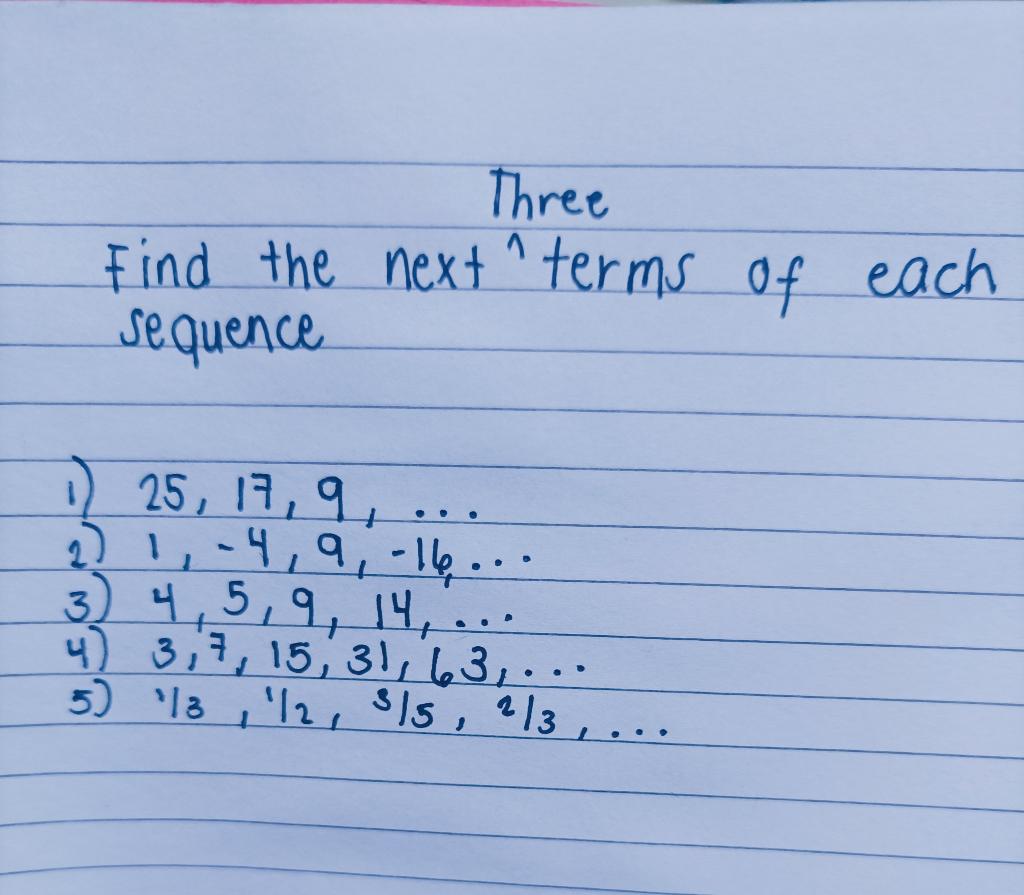 Three
Find the next ^ terms of each
sequence
1) 25, 17, 9, ...
2) 1, -4, 9, -16, ...
3) 4, 5, 9, 14, ...
4) 3, 7, 15, 31, 63, ...
5) 1/3, 1/2, 3/5, 2/3, ...